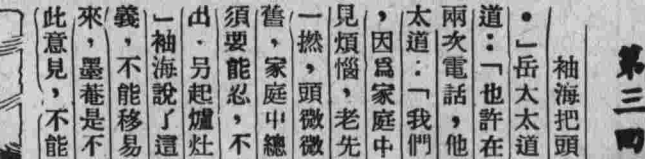 第三回
袖海把頭
。」岳太太道
道：「也許在
兩次電話，他
太道：「我們
，因爲家庭中
見煩惱，老先
一撚，頭微微
舊，家庭中總
須要能忍，不
出．另起爐灶
」袖海說了這
義，不能移易
來，墨菴是不
此意見，不能